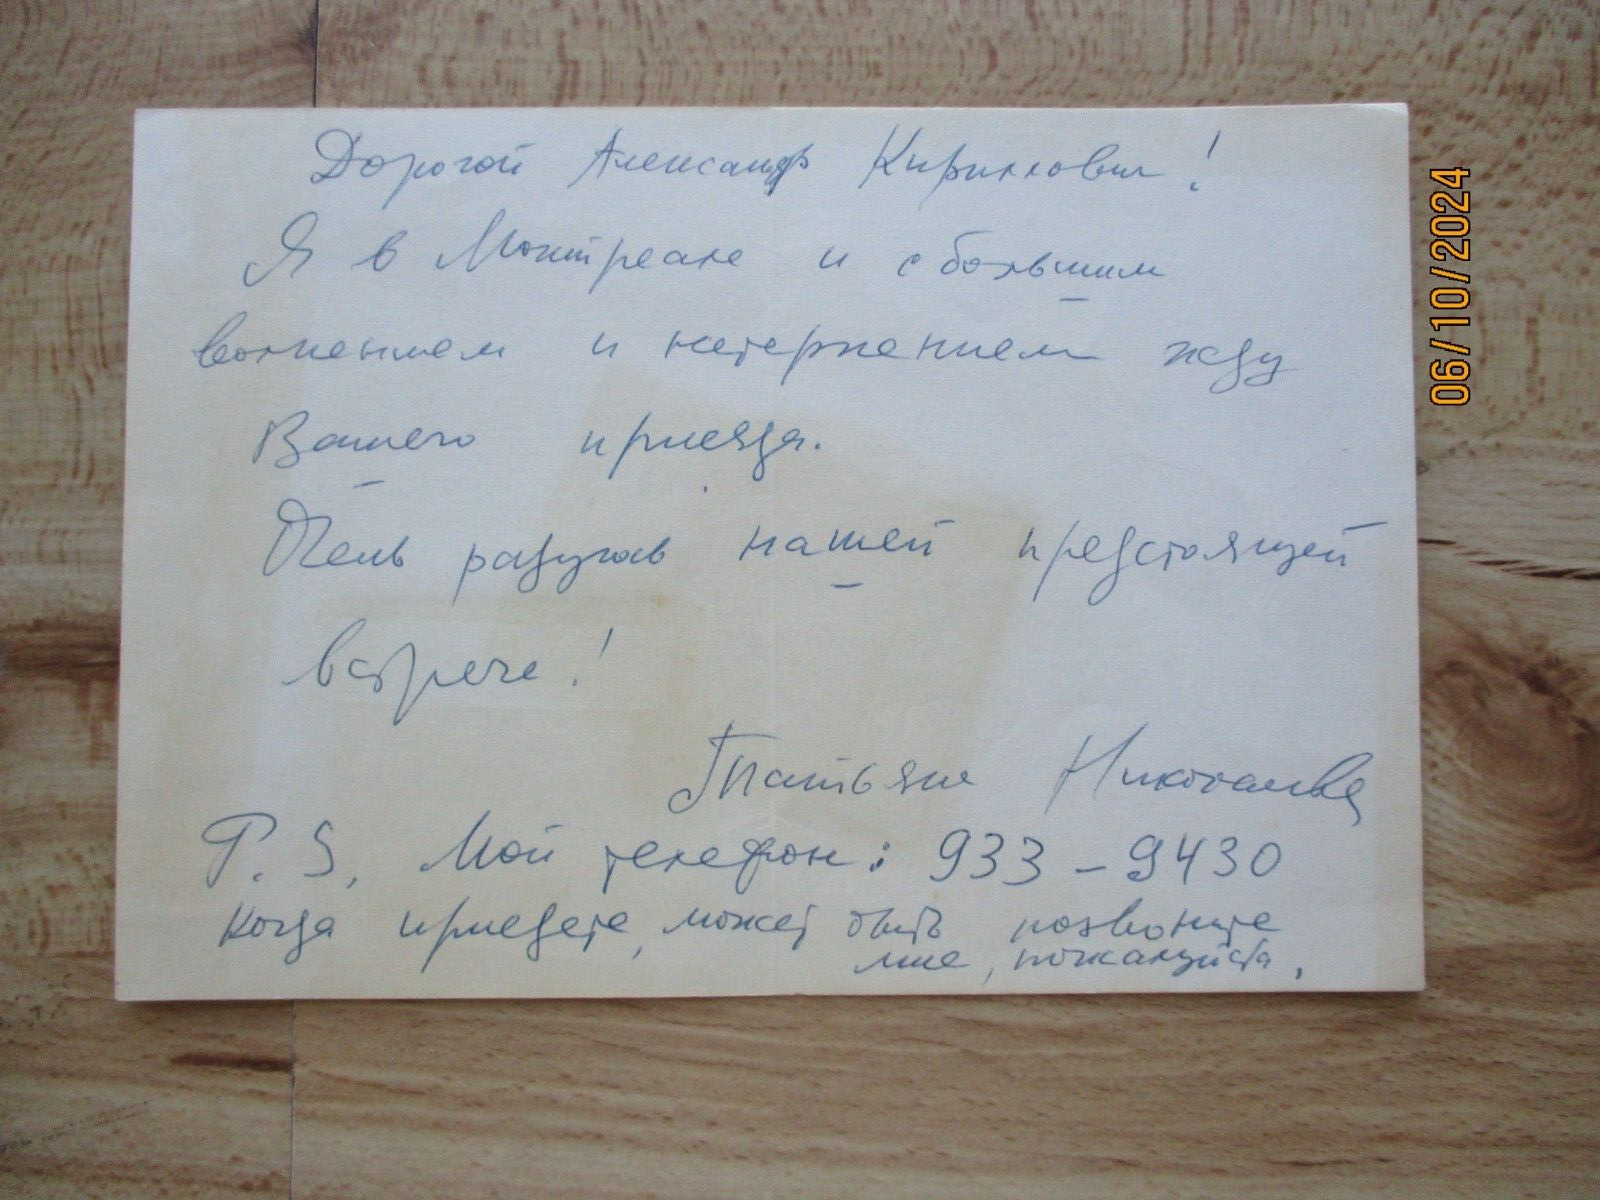 Дорогой Александр Кириллович!
Я в Монтреале и с большим
волнением и нетерпением жду
Вашего приезда.
Очень радуюсь нашей предстоящей
встрече!
Татьяна Николаева
P.S. Мой телефон: 933-9430
Когда приедете, может быть позвоните
мне, пожалуйста.
06/10/2024